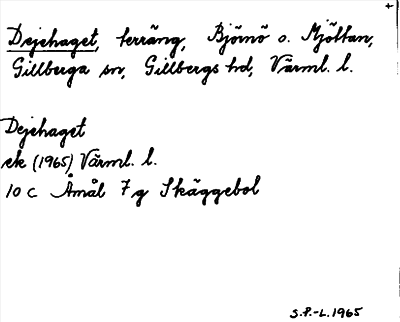 +
Dejehaget, terräng, Björnö o. Mjöttan,
Gillberga sn, Gillbergs hd, Värml. l.
Dejehaget
ek (1965) Värml. l.
10 c Åmål 7 g Skäggebol
S.P.-L. 1965